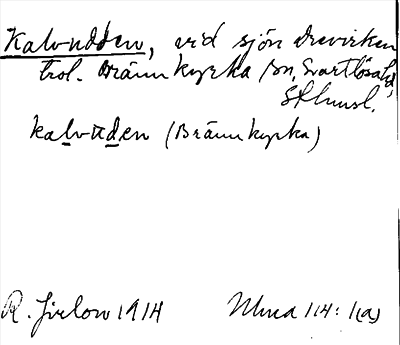 Kalvudden, vid sjön Drevviken
trol. Brännkyrka sn, Svartlösa hd,
Sthmsl.
kalvuden (Brännkyrka)
R. Jirlow 1914 Mua 114: 1(a)